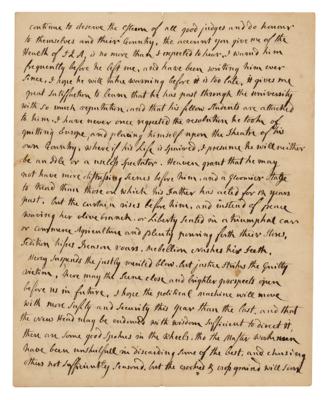 continue to deserve the esteem of all good judges and do honour
to themselves and their Country. the account you give me of the
Health of J.Q.A. is no more than I expected to hear. I warnd him
frequently before he left me, and have been writing him ever
since. I hope he will take warning before it is too late. it gives me
great satisfaction to learn that he has past through the university
with so much reputation, and that his fellow Students are attached
to him. I have never once regreted the resolution he took of
quitting Europe, and placing himself upon the Theatre of his
own Country, where if his Life is spaired, I presume he will neither
be an Idle or a useless Spectator. Heaven grant that he may
not have more distressing scenes before him, and a gloomier stage
to tread than those on which his Father has acted for 12 years
past. but the curtain rises before him, and instead of peace
waving her olive branch, or Liberty seated in a triumphal car
or commerce Agriculture and plenty pouring forth their Stores,
Sedition hisses Treason roars, Rebellion Gnashes his Teeth.
Mercy Suspends the justly merited blow, but justice Strikes the Guilty
victim. here may the Scene close and brighter prospects open
before us in future. I hope the political machine will move
with more safety and security this year than the last, and that
the new Head may be endowed with wisdom sufficient to direct it.
there are some good Spokes in the wheels, tho the Master workmen
have been unskilfull in discarding some of the best, and chusing
others not sufficiently Seasond, but the crooked & cross graind will soon